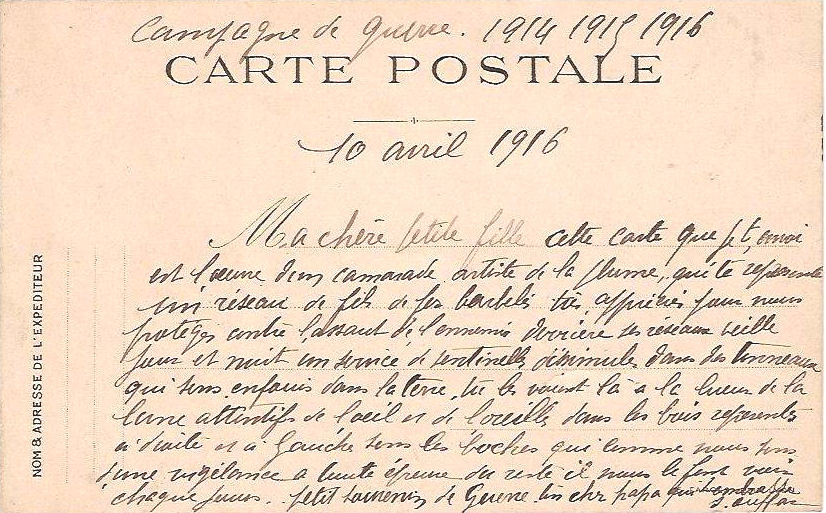 Campagne de guerre. 1914 1915 1916
CARTE POSTALE
10 avril 1916
Ma chère petite fille cette carte que je t,envoi
est l'oeuvre d'un camarade artiste de la plume, qui te represente
un réseau de fils de fer barbelés très appréciés pour nous
protéger contre l,assaut de l,ennemi derrière ses reseaux veille
jour et nuit un service de sentinelles dissimulés dans des tonneaux
qui sons enfouis dans la terre, tu les voient là a la lueur de la
lune attentifs de l'oeil et de l'oreille dans les bois representés
a droite et a gauche sons les boches qui comme nous sons
d'une vigilance a toute épreuve du reste il nous le font voir
chaque jours. petit souvenir de Guerre. ton cher papa qui
NOM & ADRESSE DE L'EXPEDITEUR